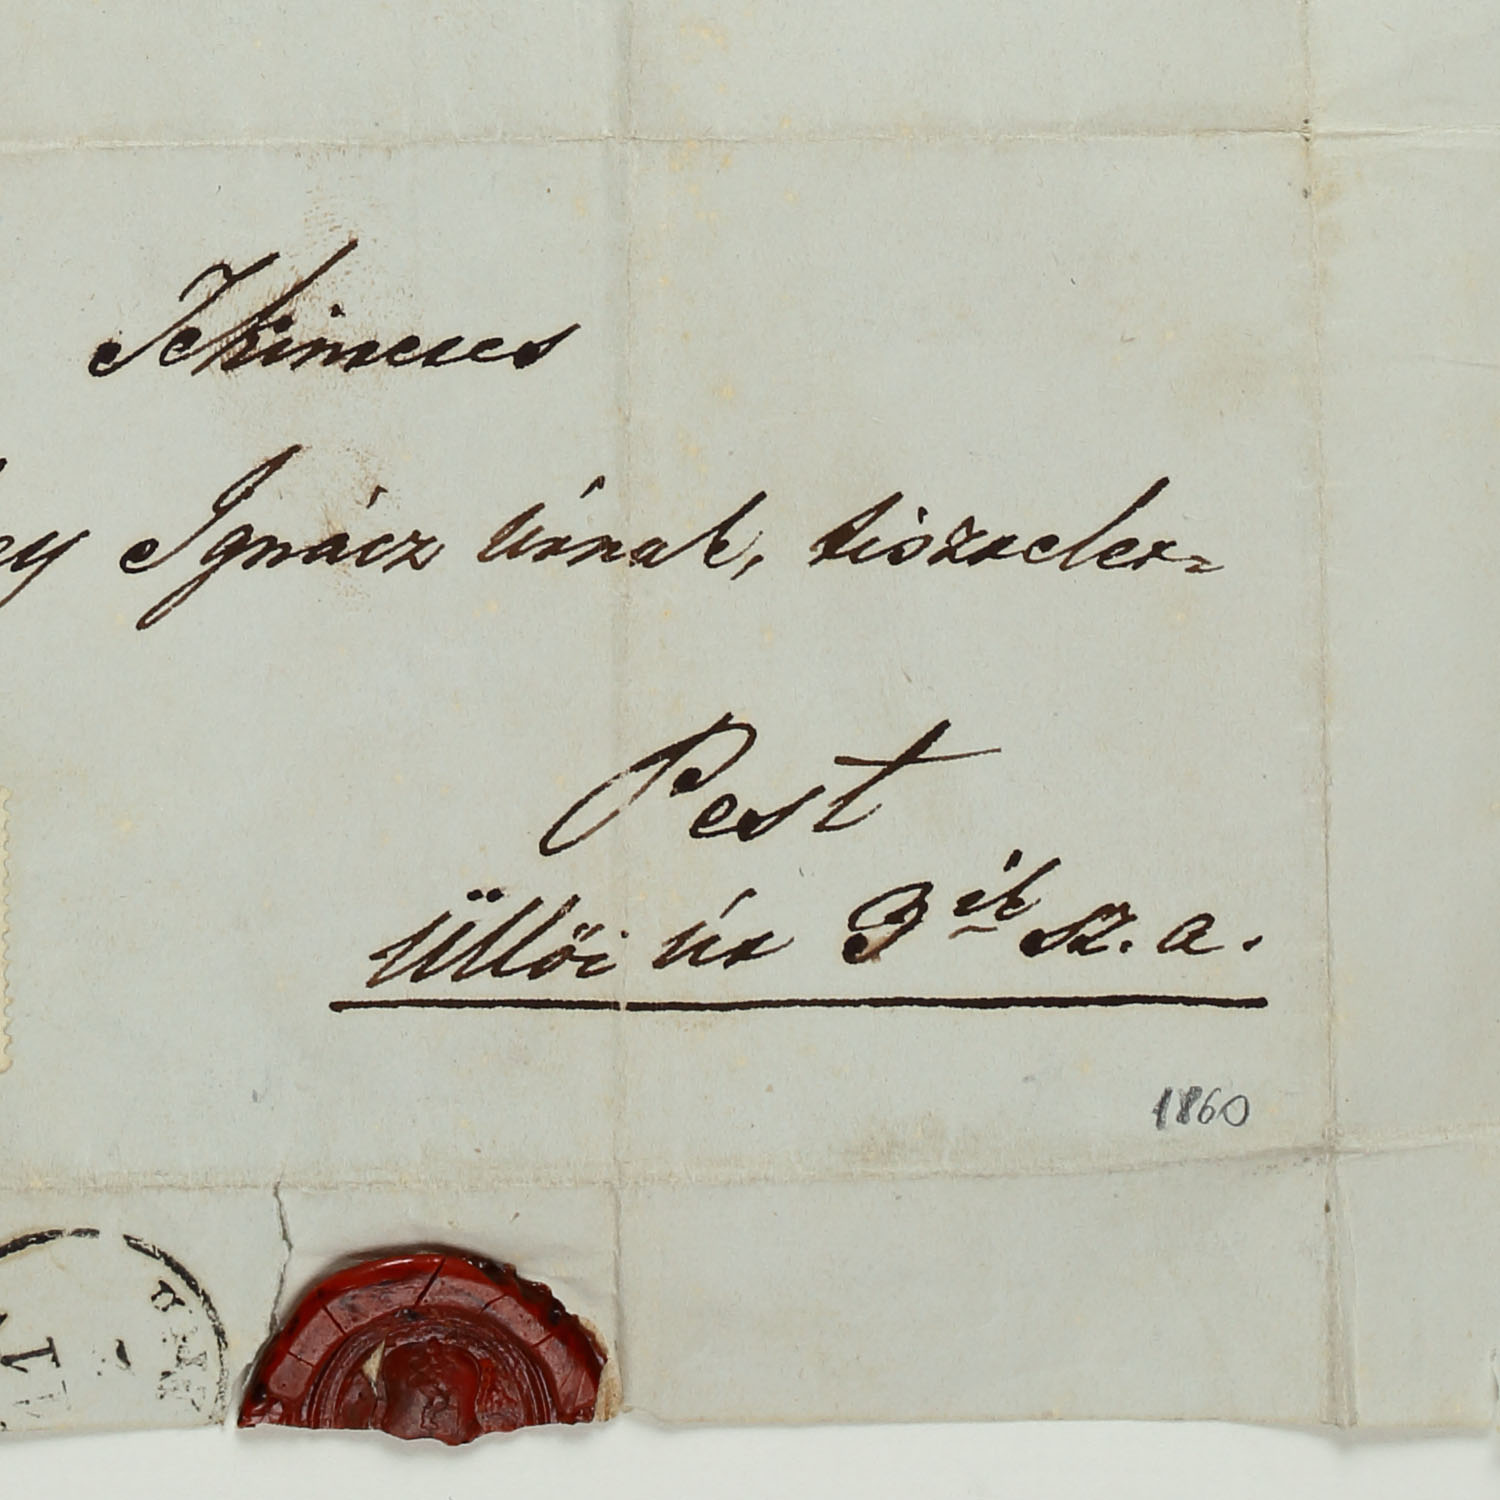 Tekintetes
Ignácz úrnak, tisztelet-
Pest
Üllői út 3ik sz. a.
1860